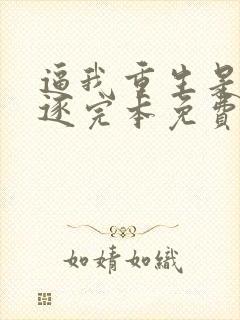 逼我重生是
逐完本免费
如婧如織